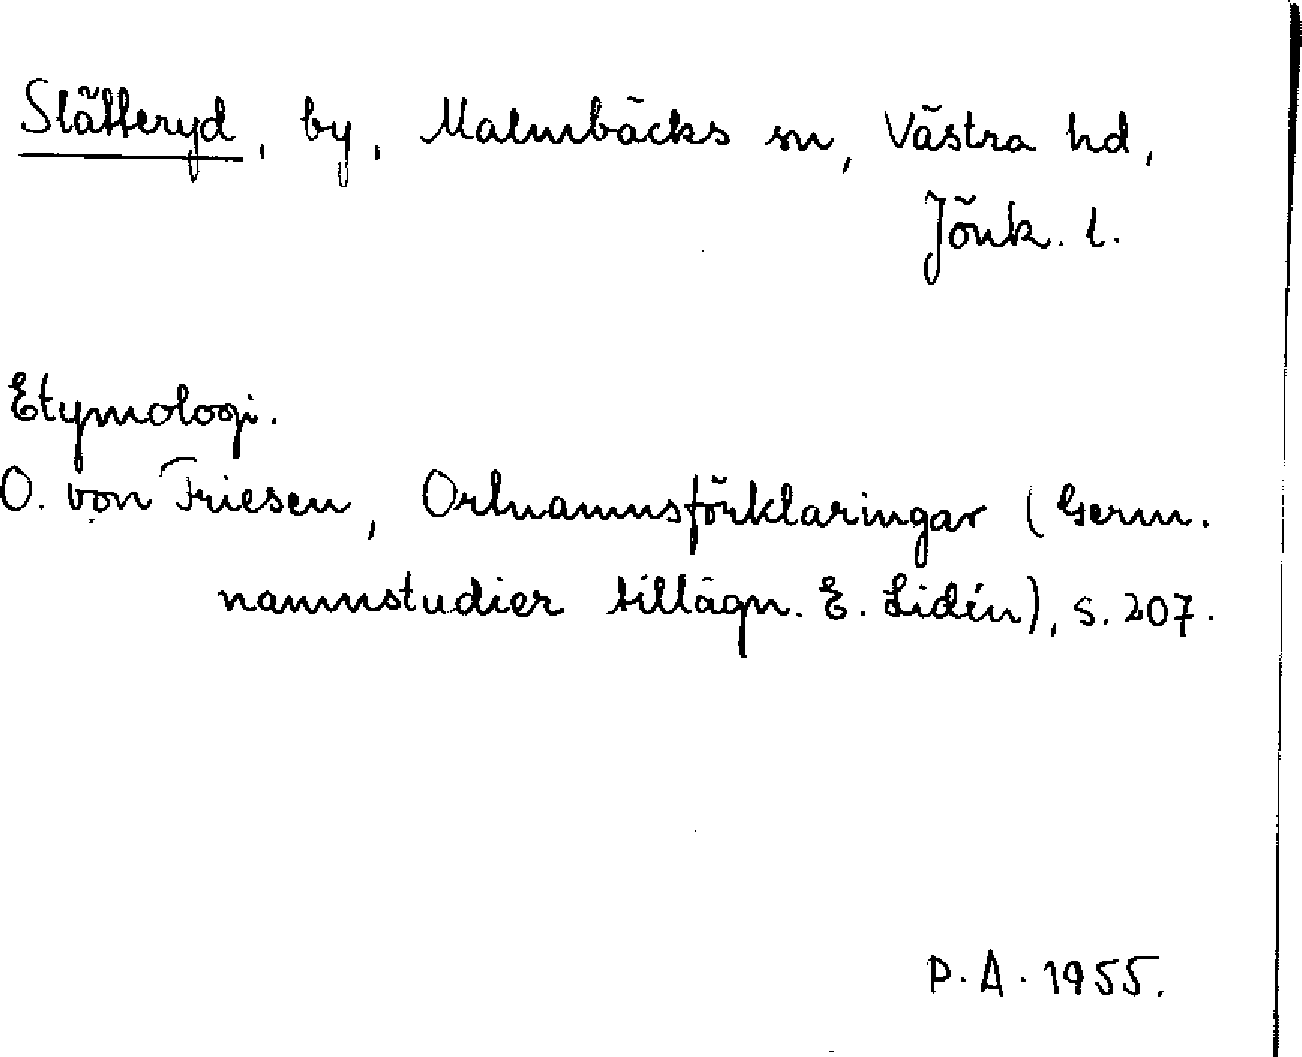 Slätteryd, by, Malmbäcks sn, Västra hd,
Jönk. l.
Etymologi.
O. von Friesen, Ortnamnsförklaringar (Germ.
namnstudier tillägn. E. Lidén), s. 207.
P. A. 1955.